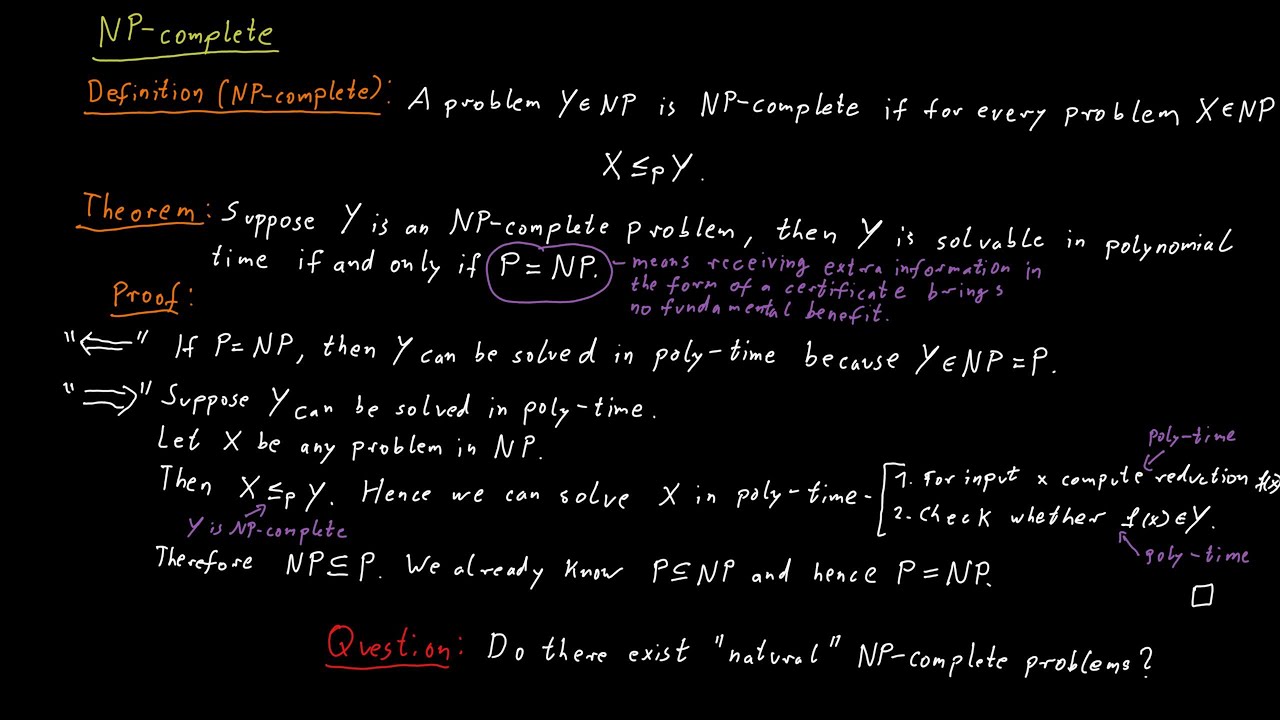 NP-complete
Definition (NP-complete): A problem Y∈NP is NP-complete if for every problem X∈NP
X ≤p Y.
Theorem: Suppose Y is an NP-complete problem, then Y is solvable in polynomial
time if and only if P = NP. - means receiving extra information in
the form of a certificate brings
no fundamental benefit.
Proof:
"⇐" If P=NP, then Y can be solved in poly-time because Y∈NP=P.
"⇒" Suppose Y can be solved in poly-time.
Let X be any problem in NP.
poly-time
Then X ≤p Y. Hence we can solve X in poly-time - 1. For input x compute reduction f(x)
2. Check whether f(x)∈Y.
Y is NP-complete
poly-time
Therefore NP⊆P. We already know P⊆NP and hence P=NP.
□
Question: Do there exist "natural" NP-complete problems?